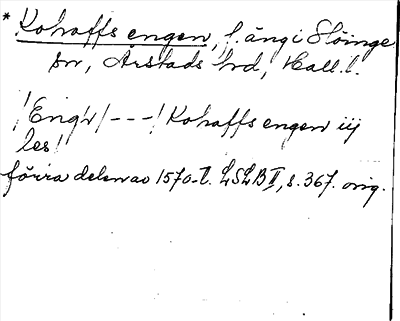 * Kohaffs engen, f. äng i Slöinge
sn, Årstads hd, Hall. l.
/Eng'r/ - - -/ Kohaffs engen iij
les/
förra delen av 1570-t. LSLB II, s. 367. orig.